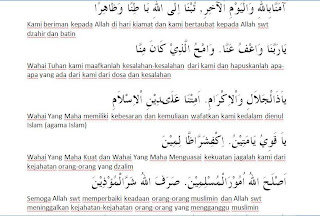 آمَنَّا بِاللهِ وَالْيَوْمِ الْآخِرِ. تُبْنَا إِلَى اللهِ بَاطِنًا وَظَاهِرًا
Kami beriman kepada Allah di hari kiamat dan kami bertaubat kepada Allah swt
dzahir dan batin
يَارَبَّنَا وَاعْفُ عَنَّا. وَامْحُ الَّذِيْ كَانَ مِنَّا
Wahai Tuhan kami maafkanlah kesalahan-kesalahan dari kami dan hapuskanlah apa-
apa yang ada dari kami dari dosa dan kesalahan
يَاذَاالْجَلَالِ وَالْإِكْرَامِ. اَمِتْنَا عَلَى دِيْنِ الْإِسْلَامِ
Wahai Yang Maha memiliki kebesaran dan kemuliaan wafatkan kami kedalam dienul
Islam (agama Islam)
يَا قَوِيُّ يَامَتِيْنُ. اِكْفِ شَرَّالظَّالِمِيْنَ
Wahai Yang Maha Kuat dan Wahai Yang Maha Menguasai kekuatan jagalah kami dari
kejahatan-kejahatan orang-orang yang dzalim
اَصْلَحَ اللهُ اُمُوْرَالْمُسْلِمِيْنَ. صَرَفَ اللهُ شَرَّالْمُؤْذِيْنَ
Semoga Allah swt memperbaiki keadaan orang-orang muslimin dan Allah swt
meninggalkan kejahatan-kejahatan orang-orang yang mengganggu muslimin